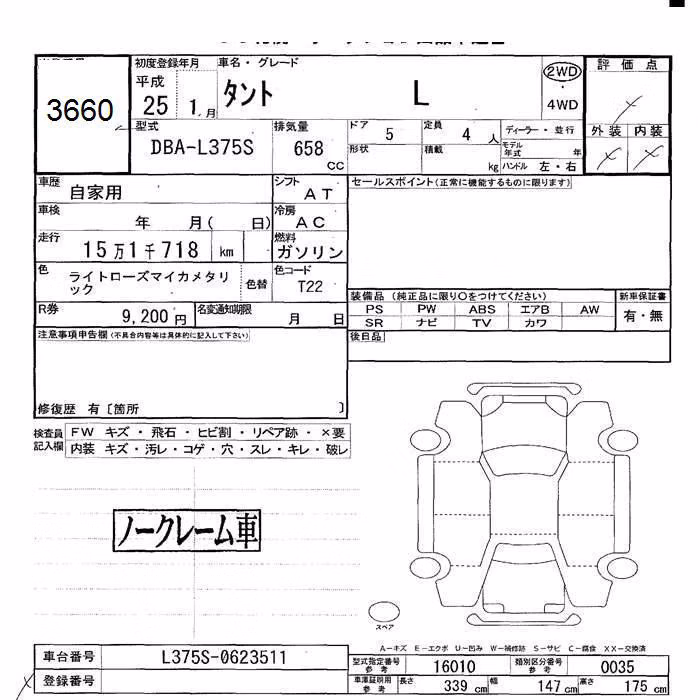 3660
初度登録年月
平成
25 1 月
車名・グレード
タント L
2WD
4WD
評価点
外装 内装
型式
DBA-L375S
排気量
658
CC
ドア 5
定員 4 人
ディーラー・並行
形状
積載 kg
モデル年式 年
ハンドル 左・右
車歴
自家用
シフト
AT
セールスポイント(正常に機能するものに限ります)
車検
年 月( 日)
冷房
AC
走行
15万1千718 km
燃料
ガソリン
色
ライトローズマイカメタリ
ック
色替
色コード
T22
装備品 (純正品に限り○をつけてください)
新車保証書
PS PW ABS エアB AW
有・無
SR ナビ TV カワ
R券
9,200 円
名変通知期限
月 日
後日品
注意事項申告欄(不具合内容等は具体的に記入して下さい)
修復歴 有〔箇所 〕
検査員
記入欄
FW キズ・飛石・ヒビ割・リペア跡・×要
内装 キズ・汚レ・コゲ・穴・スレ・キレ・破レ
ノークレーム車
スペア
A-キズ E-エクボ U-凹み W-補修跡 S-サビ C-腐食 XX-交換済
車台番号
L375S-0623511
登録番号
型式指定番号
参考
16010
類別区分番号
参考
0035
車庫証明用
参考
長さ 339 cm
幅 147 cm
高さ 175 cm